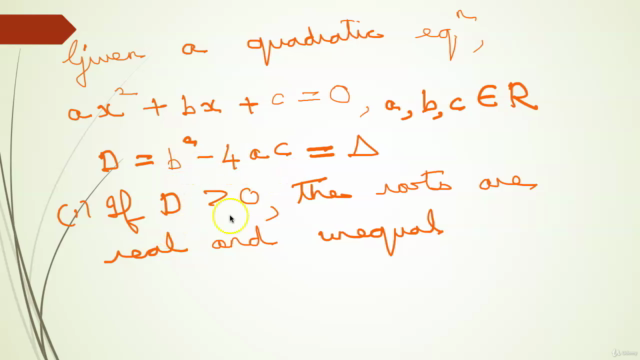 Given a quadratic eqⁿ,
ax² + bx + c = 0, a, b, c ∈ R
D = b² - 4ac = Δ
(i) If D > 0, the roots are
real and unequal